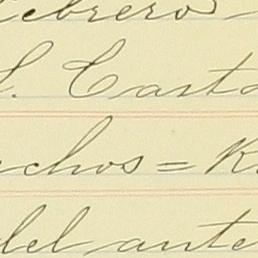 ebrero
l. Cast
chos = K
del ante